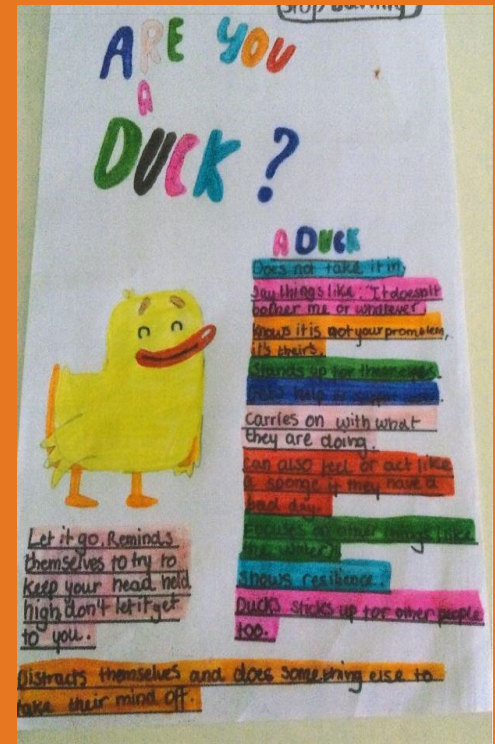 Stop bullying
ARE YOU
A
DUCK?
A DUCK
Does not take it in.
Say things like: "It doesn't
bother me or whatever.
Knows it is not your promblem,
it's theirs.
Stands up for themselves.
carries on with what
they are doing.
can also feel or act like
a sponge if they have a
bad day.
Focuses on other things like
the water.
Shows resilience.
Ducks sticks up for other people
too.
Let it go. Reminds
themselves to try to
keep your head held
high, don't let it get
to you.
Distracts themselves and does something else to
take their mind off.